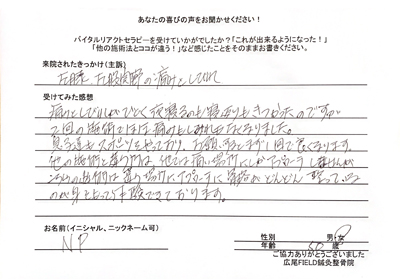 あなたの喜びの声をお聞かせください！
バイタルリアクトセラピーを受けていかがでしたか？「これが出来るようになった！」
「他の施術法とココが違う！」など感じたことをそのままお書きください。
来院されたきっかけ（主訴）
左膝 左股関節の痛みとしびれ
受けてみた感想
痛みとしびれがひどく夜寝るのも寝返りもきつかったのですが
2回の施術でほぼ痛みもしびれもなくなりました。
息子達もスポーツをやっており、お願いすると1回で良くなります。
他の施術と違うのは、他では痛い場所にしかアプローチしませんが
こちらの施術は違う場所にアプローチして骨格がどんどん整っていく
のが身をもって体験できております。
お名前（イニシャル、ニックネーム可）
N P
性別 男・女
年齢 50 歳
ご協力ありがとうございました
広尾FIELD鍼灸整骨院